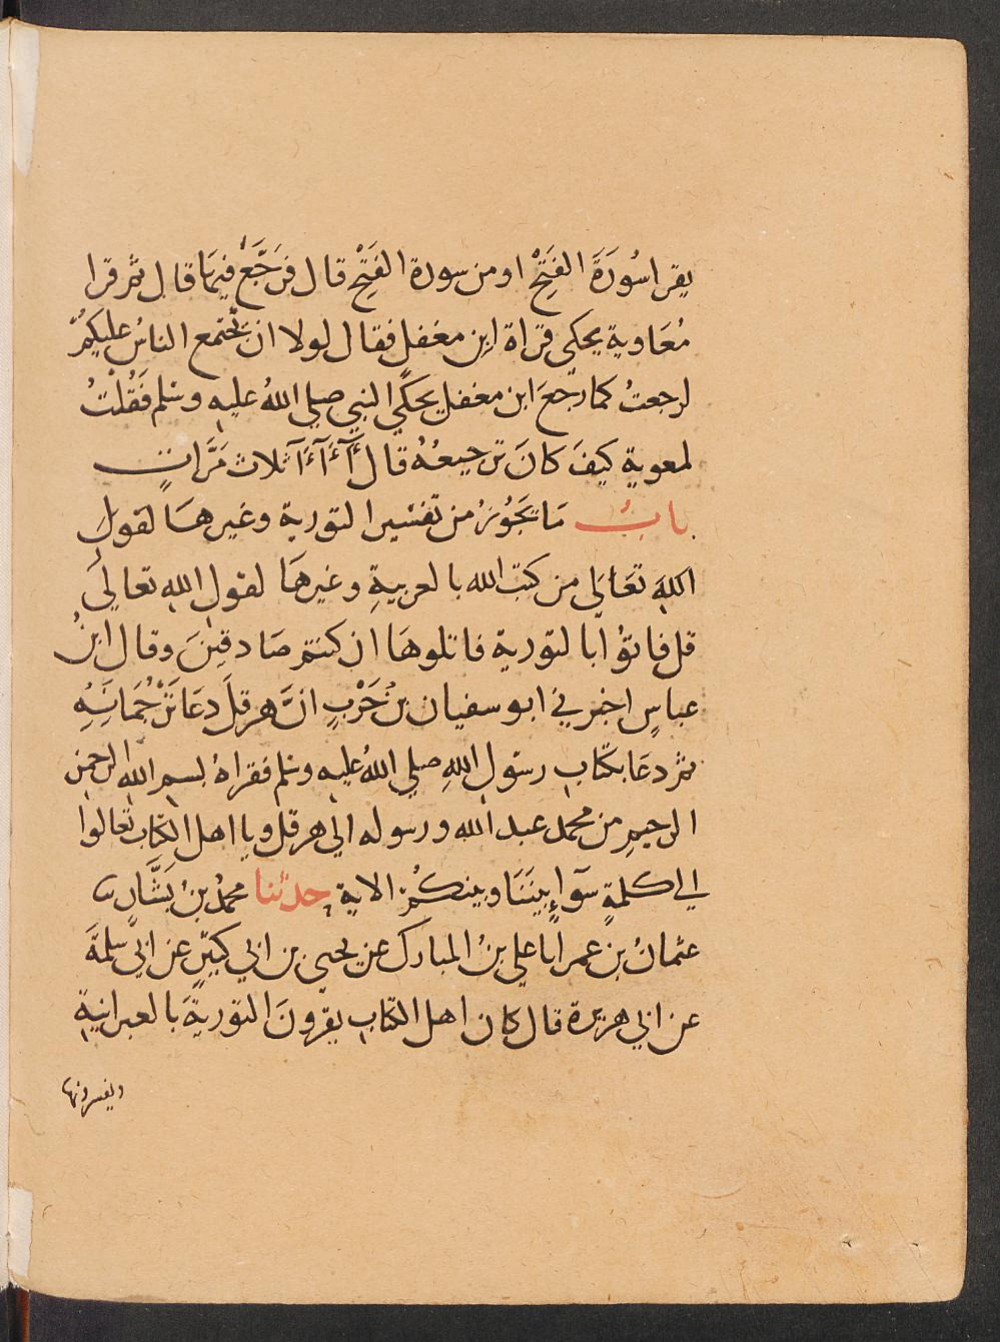 يقرا سُورَةَ الفَتِحْ او من سورة الفَتِحْ قال فرَجَّعَ فيمَا قال ثم قرا
مُعَاوية يحكي قراة ابن مغفل فقال لولا ان يَجتمع الناسُ عليكمُ
لرجعتُ كما رجعَ ابن مغفل يحكي النبي صلي اللهُ عليه وسلم فَقُلْتُ
لمعوية كيفَ كانَ ترجيعُهُ قال آءَآءَآ ثلاث مَرَّاتٍ
بابُ مَا يَجَوُزُ من تفسير التورية وغيرهَا لقول
اللهِ تعَالَى من كتب الله بالعربيةِ وغيرهَا لقول الله تعالي
قل فاتوُا بالتورية فاتلوهَا ان كنتم صَادقينَ وقال ابنُ
عباسٍ اخبرني ابو سفيان بنُ حَرْبٍ انَّ هرقلَ دعَا تَرْجُمَانَهُ
ثم دعَا بكتاب رسول اللهِ صلي اللهُ عليه وسلم فقراهُ بسم الله الرحمن
الرحيمِ من محمد عبد الله ورسوله الي هرقل ويا اهل الكتاب تعَالوا
الي كلمةٍ سوَآءٍ بينَنَا وبينكمُ الاية حدثنا محمدُ بنُ بَشَّارٍ نا
عثمانُ بن عمر انا علي بنُ المبارك عن يحيى بن ابي كثيرٍ عن ابي سلمَةَ
عن ابي هريرة قال كان اهل الكتاب يقرونَ التوريةَ بالعبرانية
ويفسرونها